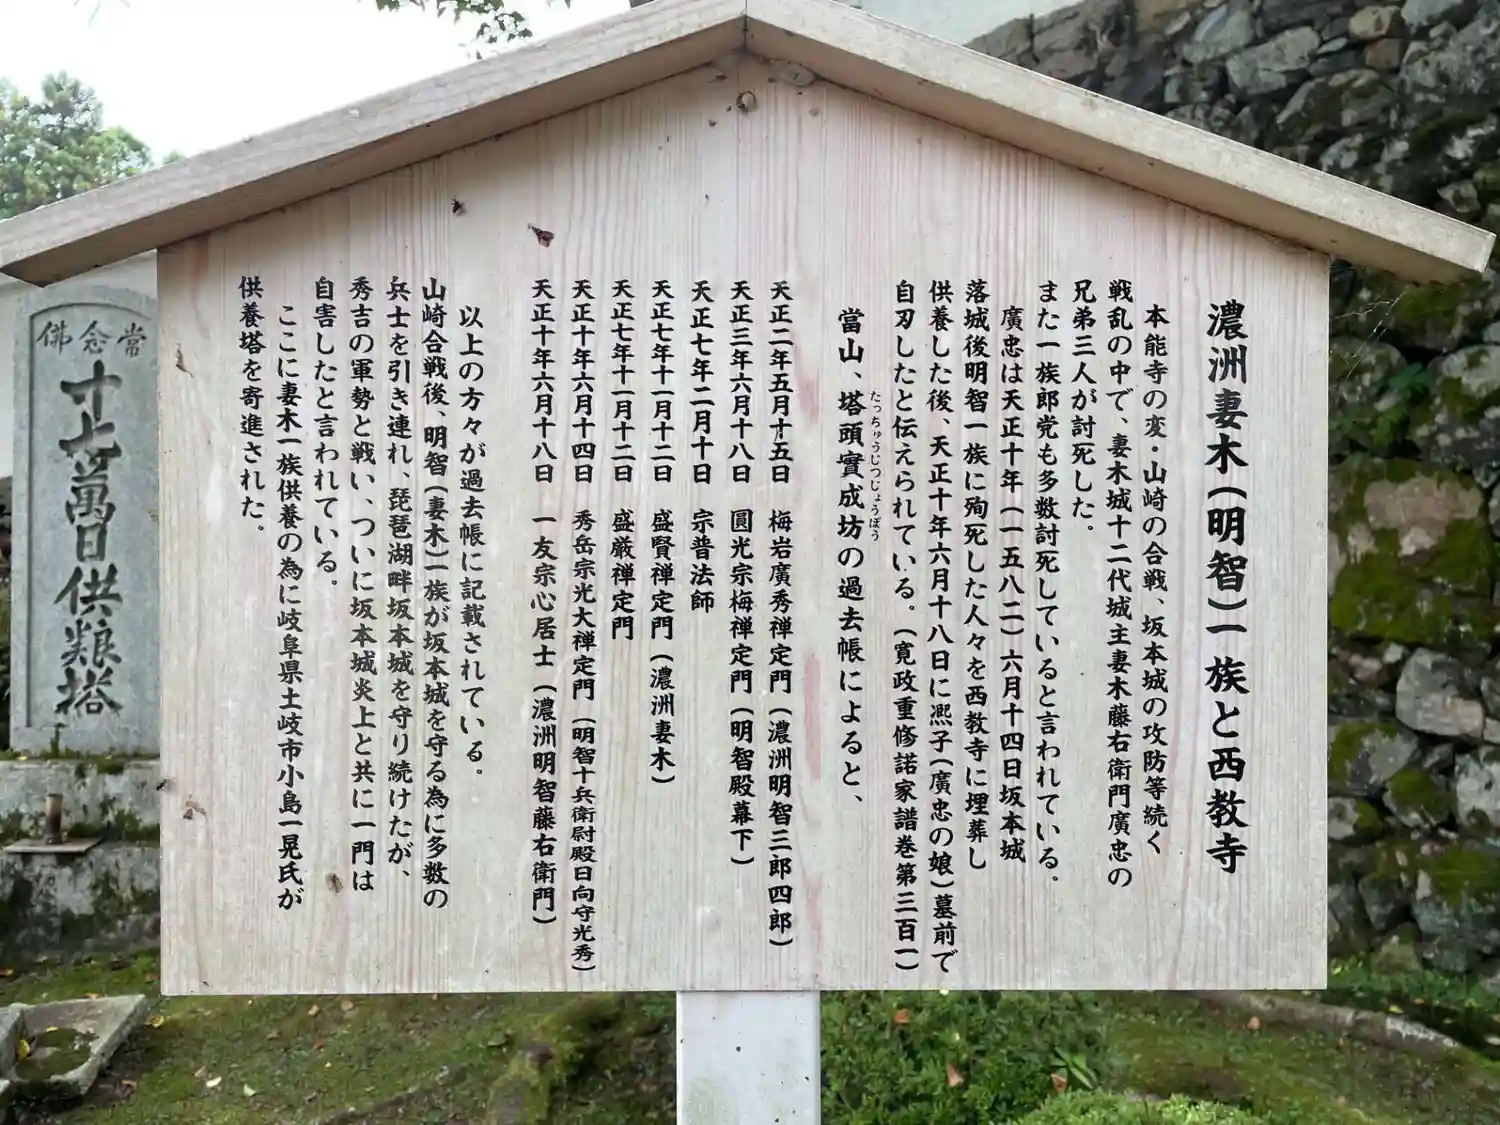 濃洲妻木（明智）一族と西教寺
本能寺の変・山崎の合戦、坂本城の攻防等続く
戦乱の中で、妻木城十二代城主妻木藤右衛門廣忠の
兄弟三人が討死した。
また一族郎党も多数討死していると言われている。
廣忠は天正十年（一五八二）六月十四日坂本城
落城後明智一族に殉死した人々を西教寺に埋葬し
供養した後、天正十年六月十八日に凞子（廣忠の娘）墓前で
自刃したと伝えられている。（寛政重修諾家譜巻第三百一）
當山、塔頭實成坊の過去帳によると、
たっちゅうじつじょうぼう
天正二年五月十五日　梅岩廣秀禅定門（濃洲明智三郎四郎）
天正三年六月十八日　圓光宗梅禅定門（明智殿幕下）
天正七年二月十日　宗普法師
天正七年十一月十二日　盛賢禅定門（濃洲妻木）
天正七年十一月十二日　盛厳禅定門
天正十年六月十四日　秀岳宗光大禅定門（明智十兵衛尉殿日向守光秀）
天正十年六月十八日　一友宗心居士（濃洲明智藤右衛門）
以上の方々が過去帳に記載されている。
山崎合戦後、明智（妻木）一族が坂本城を守る為に多数の
兵士を引き連れ、琵琶湖畔坂本城を守り続けたが、
秀吉の軍勢と戦い、ついに坂本城炎上と共に一門は
自害したと言われている。
ここに妻木一族供養の為に岐阜県土岐市小島一晃氏が
供養塔を寄進された。
常念佛
十七萬日供粮塔